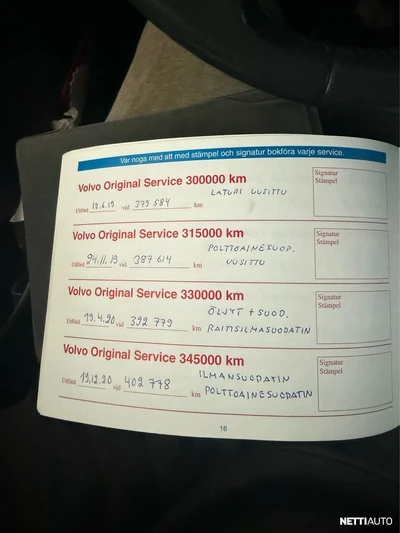 Var noga med att med stämpel och signatur bokföra varje service.
Volvo Original Service 300000 km
LATURI UUSITTU
Utförd 19.6.19 vid 379 584 km
Signatur
Stämpel
Volvo Original Service 315000 km
POLTTOAINESUOD.
UUSITTU
Utförd 24.11.19 vid 387 614 km
Signatur
Stämpel
Volvo Original Service 330000 km
ÖLJYT + SUOD.
Utförd 19.4.20 vid 392 779 km
RAITISILMASUODATIN
Signatur
Stämpel
Volvo Original Service 345000 km
ILMANSUODATIN
Utförd 19.12.20 vid 402 778 km
POLTTOAINESUODATIN
Signatur
Stämpel
16
NETTIAUTO